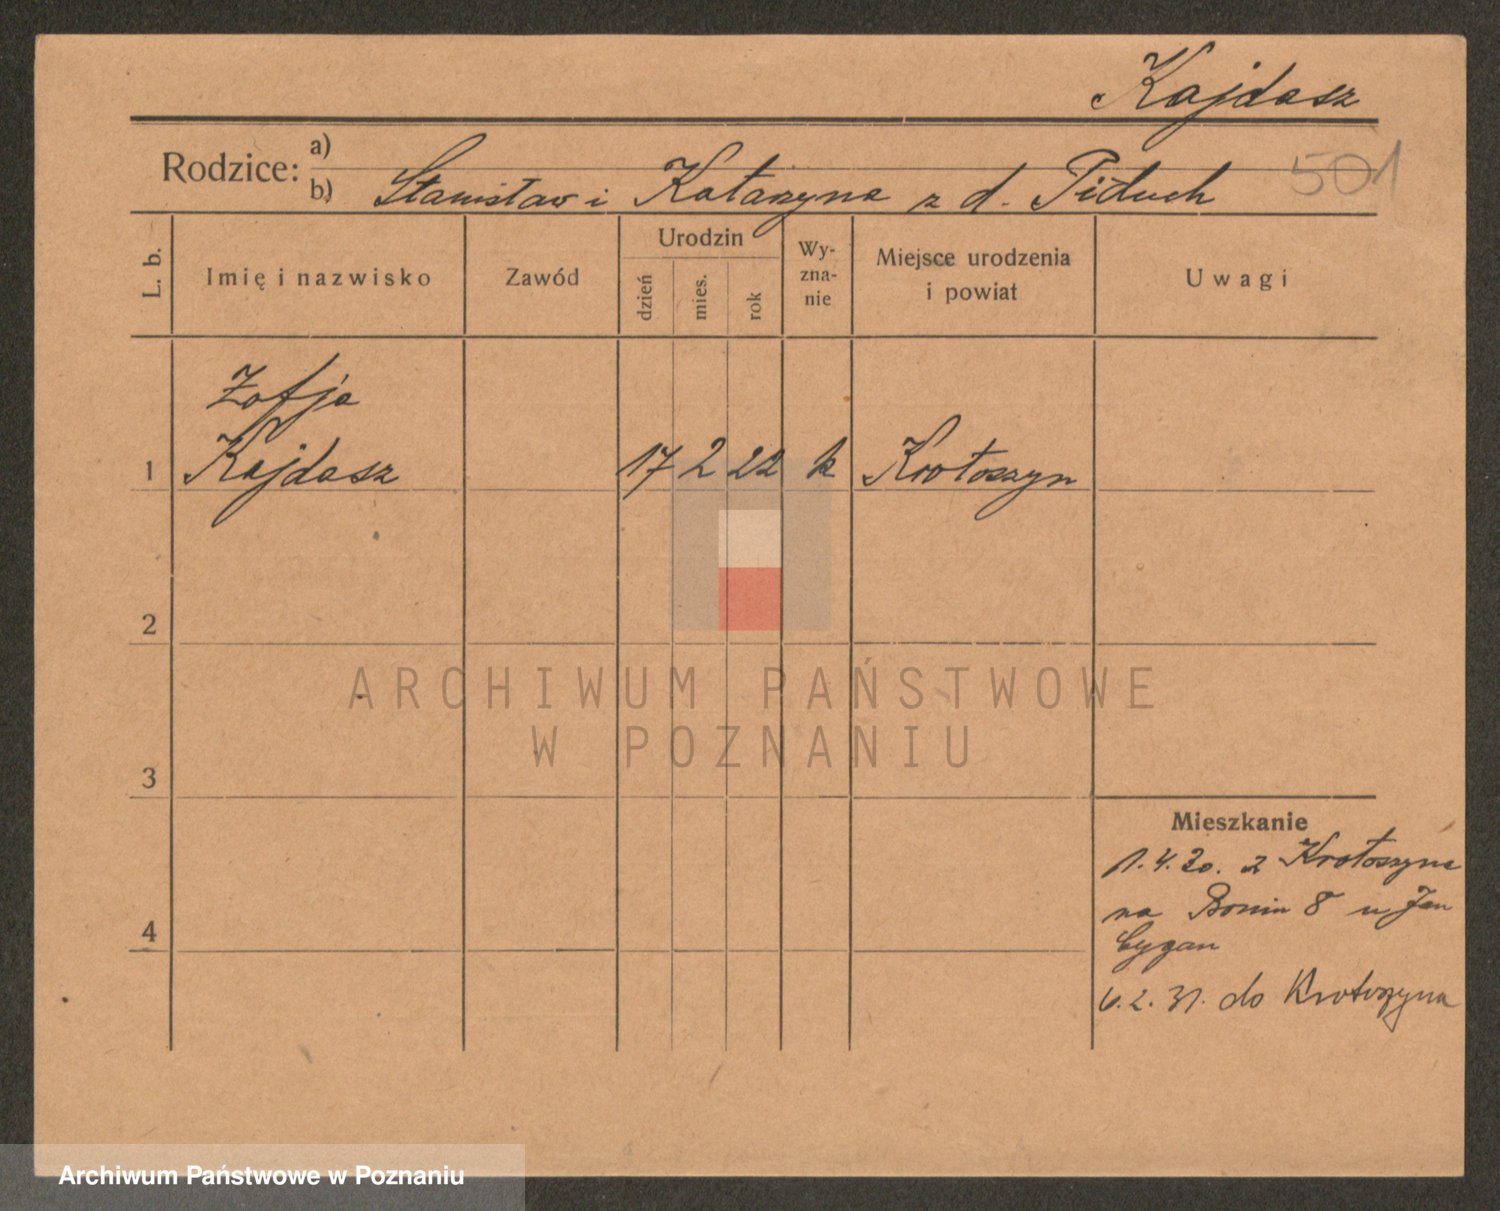 Kajdasz
Rodzice: a)
b) Stanisław i Katarzyna z d. Piduch
501
L. b.
Imię i nazwisko
Zawód
Urodzin
dzień
mies.
rok
Wy-
zna-
nie
Miejsce urodzenia
i powiat
Uwagi
Zofja
1 Kajdasz 17 2 22 k Krotoszyn
2
3
4
Mieszkanie
1.4.30. z Krotoszyna
na Bonin 8 u Jan
Cygan
6.2.31. do Krotoszyna
ARCHIWUM PAŃSTWOWE
W POZNANIU
Archiwum Państwowe w Poznaniu